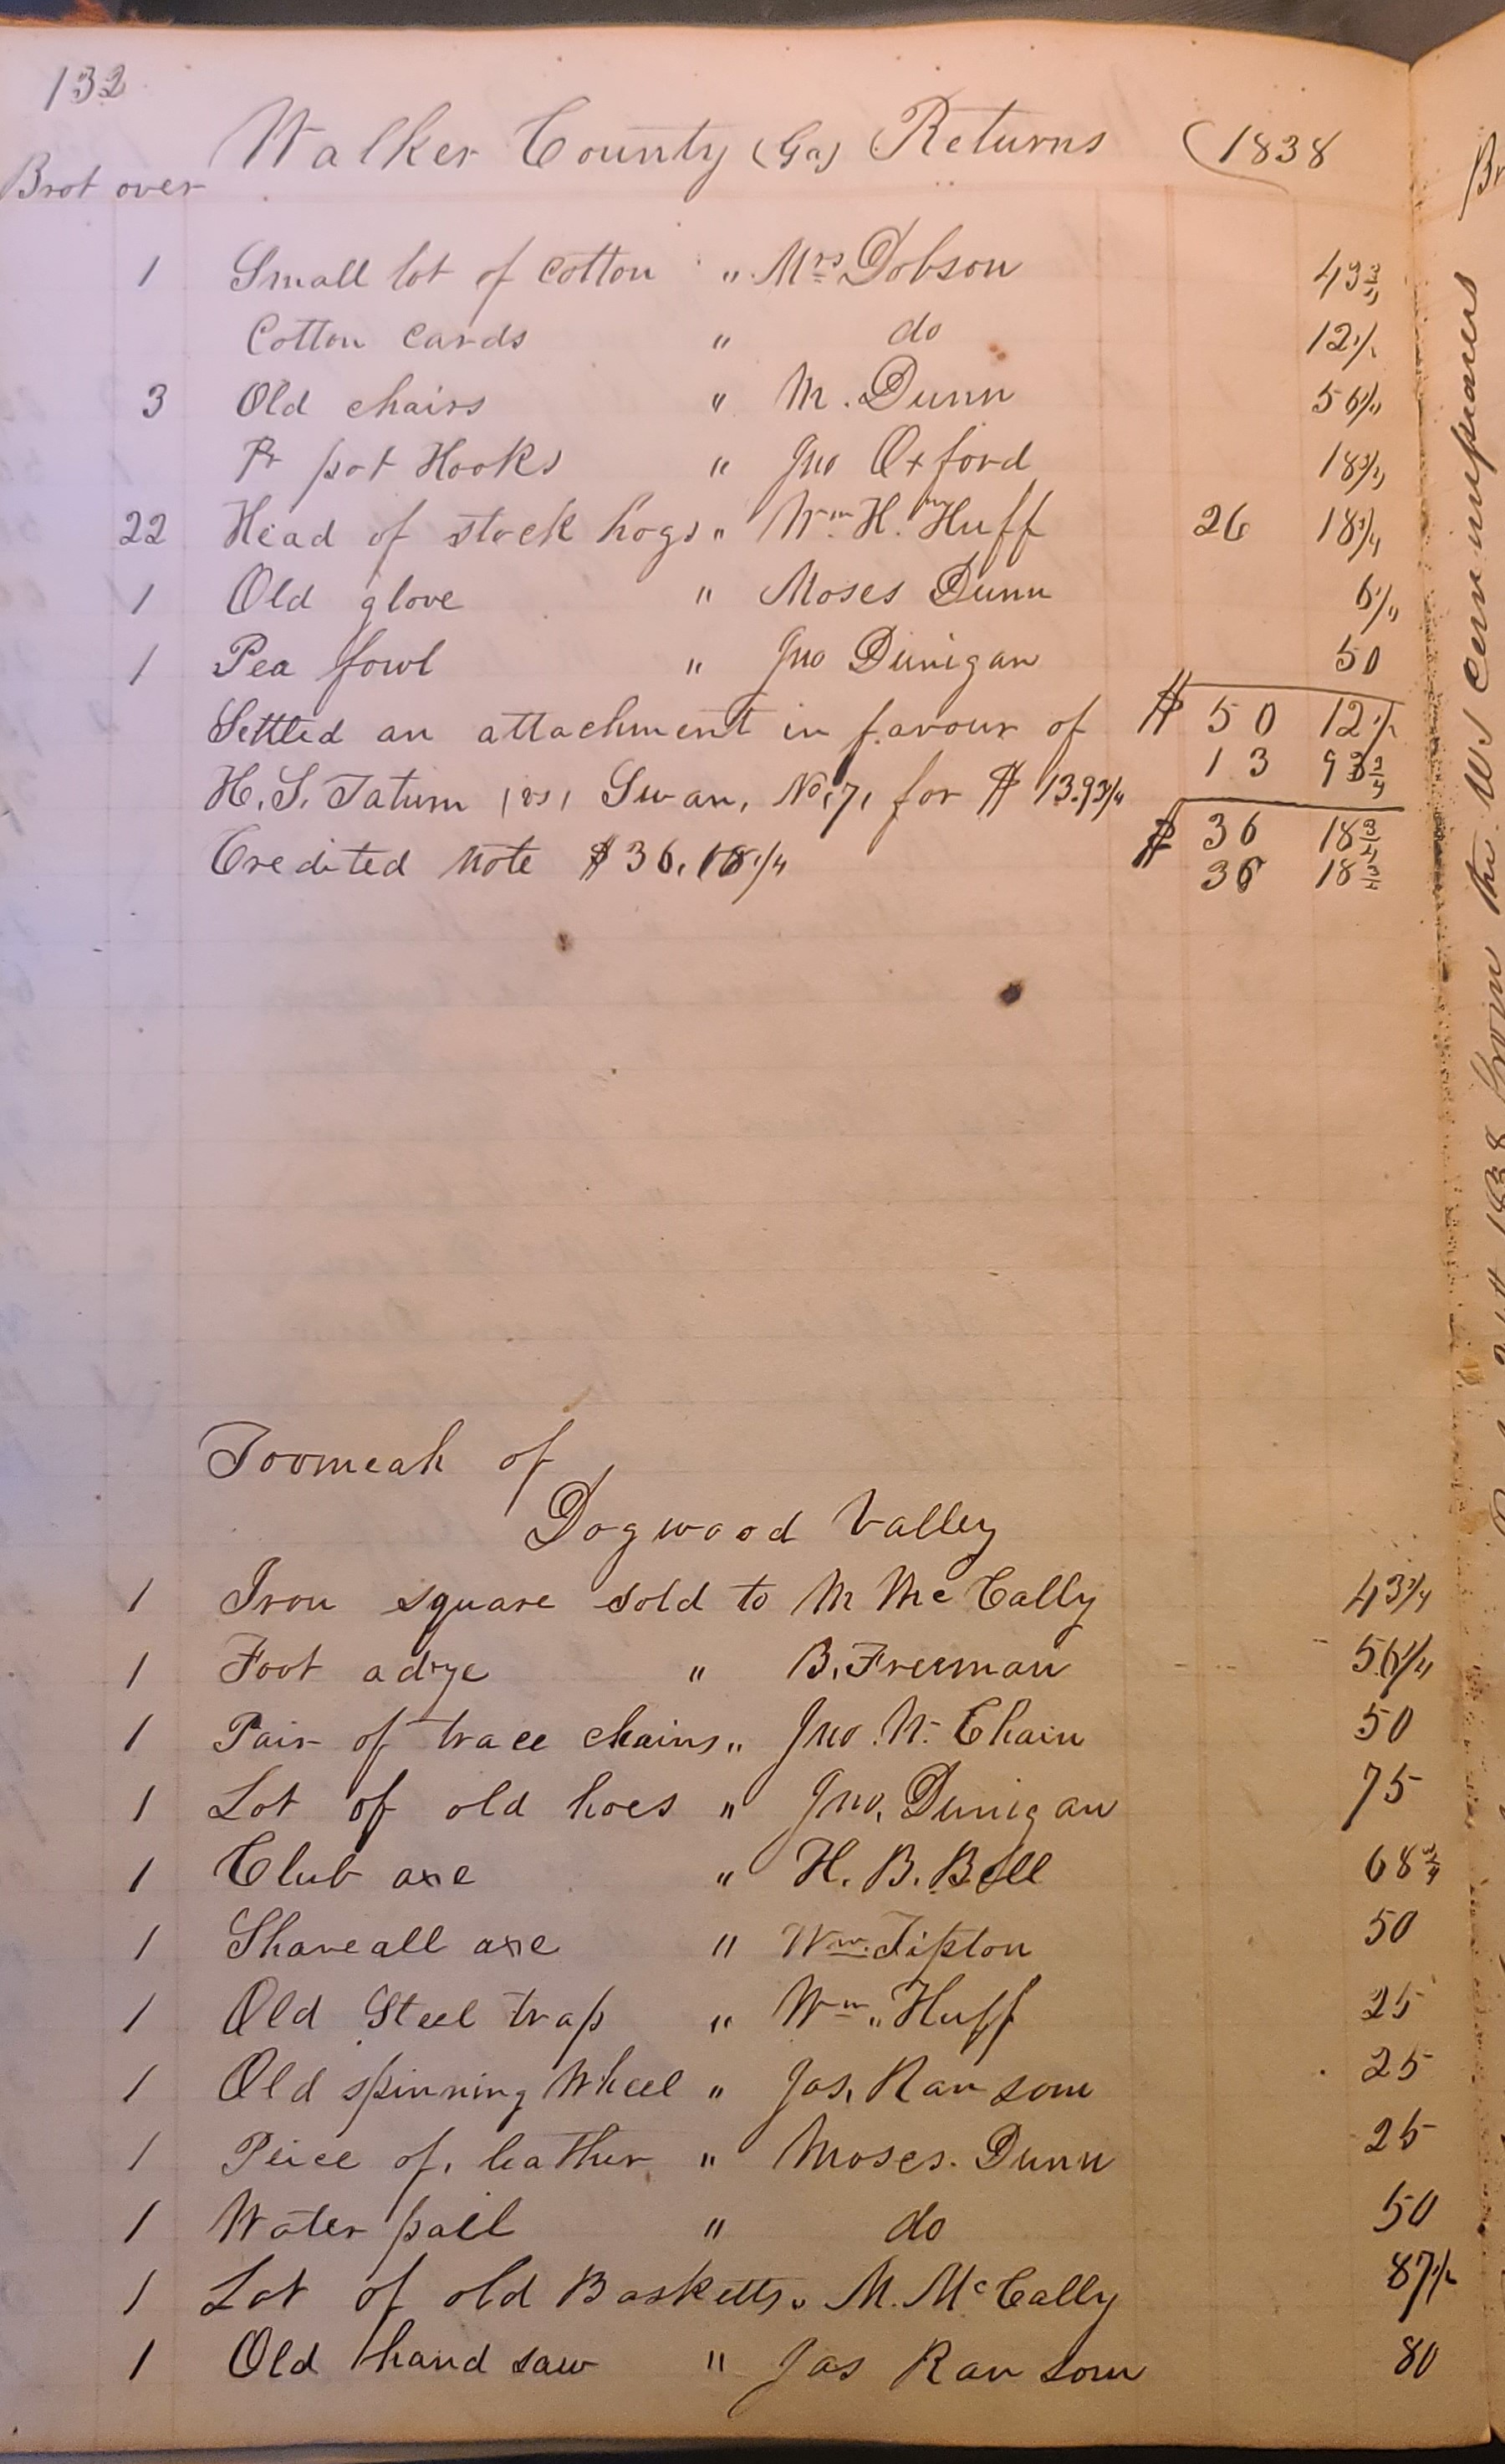 132
Walker County (Ga) Returns (1838
Brot over
1 Small lot of cotton " Mrs Dobson 43 3/4
Cotton cards " do 12 1/2
3 Old chairs " M. Dunn 56 1/4
Pr pot Hooks " Jno Oxford 18 3/4
22 Head of stock hogs " Wm H. Huff 26 18 3/4
1 Old glove " Moses Dunn 6 1/4
1 Pea fowl " Jno Dunigan 50
Settled an attachment in favour of $ 50 12 1/2
H. S. Tatum (vs) Swan, No, 7, for $ 13.93/4 13 93 3/4
$ 36 18 3/4
Credited note $36.18 1/4 36 18 3/4
Toomeah of
Dogwood Valley
1 Iron square sold to M McCally 43 3/4
1 Foot adze " B. Freeman 56 1/4
1 Pair of trace chains " Jno. W. Chain 50
1 Lot of old hoes " Jno. Dunigan 75
1 Club axe " H. B. Bell 68 3/4
1 Shareall axe " Wm. Tipton 50
1 Old Steel trap " Wm " Huff 25
1 Old spinning Wheel " Jas. Ransom 25
1 Peice of, leather " Moses. Dunn 25
1 Water pail " do 50
1 Lot of old Basketts " M. McCally 87 1/2
1 Old hand saw " Jas Ransom 80